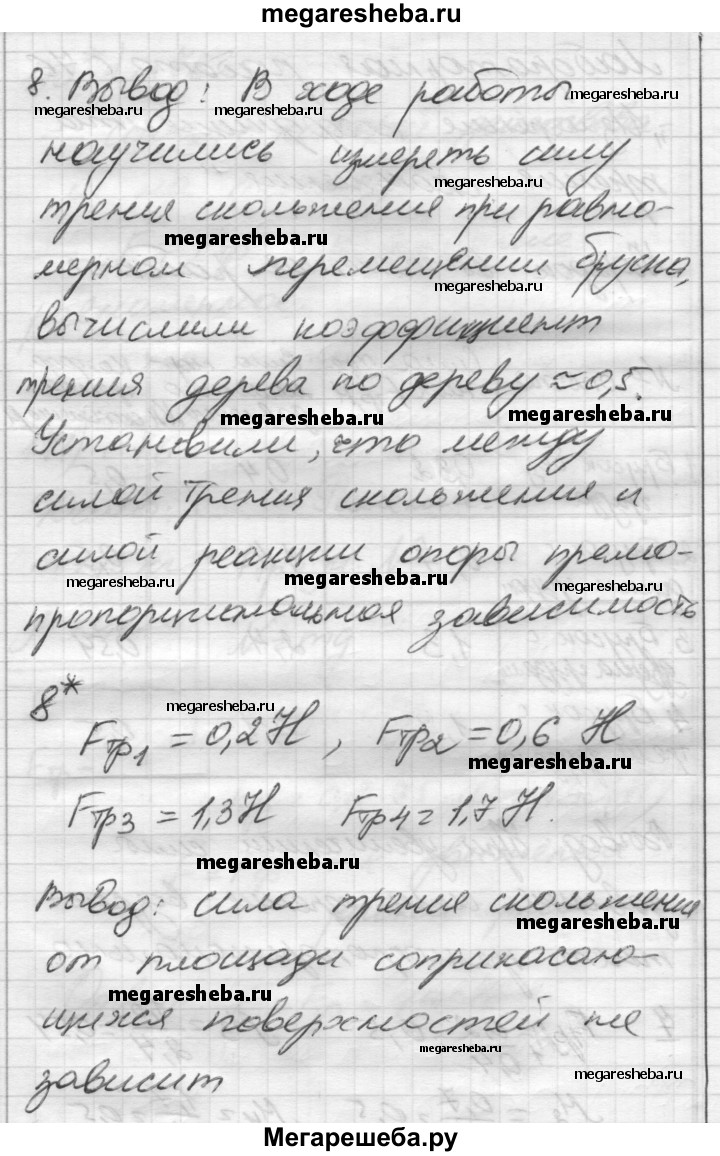 megaresheba.ru
8. Вывод: В ходе работы
megaresheba.ru megaresheba.ru megaresheba.ru
научились измереть силу
megaresheba.ru
трения скольжения при равно-
megaresheba.ru
мерном перемещении бруска,
megaresheba.ru
вычислили коэффициент
трения дерева по дереву ≈ 0,5.
megaresheba.ru megaresheba.ru
Установили, что между
силой трения скольжения и
силой реакции опоры прямо-
megaresheba.ru megaresheba.ru megaresheba.ru
пропорциональная зависимость
8*
megaresheba.ru
Fтр1 = 0,2 Н, Fтр2 = 0,6 Н
megaresheba.ru
Fтр3 = 1,3 Н Fтр4 = 1,7 Н.
megaresheba.ru
Вывод: сила трения скольжения
megaresheba.ru
от площади соприкасаю-
megaresheba.ru
щихся поверхностей не
megaresheba.ru
зависит
megaresheba.ru
Мегарешеба.ру